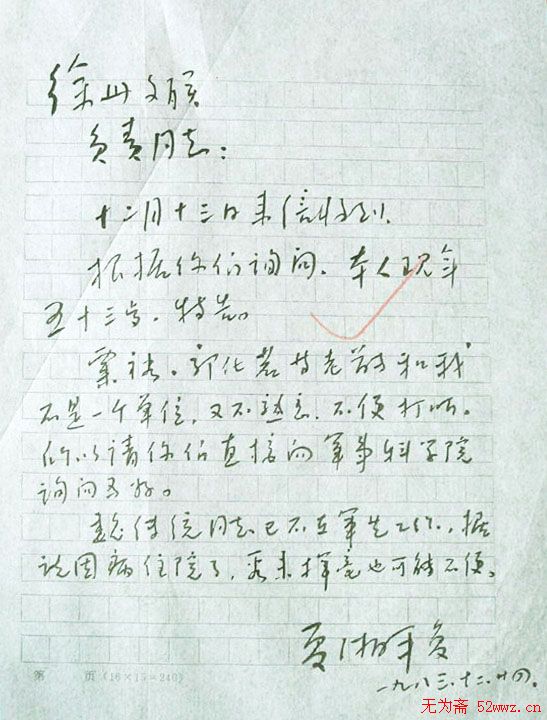 徐州文联
负责同志：
十二月十三日来信收到。
根据你们询问，本人现年
五十三岁。特告。
粟裕、郭化若等老前辈和我
不是一个单位，又不熟悉，不便打听。
所以请你们直接向军事科学院
询问为好。
同志已不在军先工作，据
说因病住院了，看来挥毫也可能不便。
夏湘平复
一九八三.十二.廿四.
第 页(16×15=240)
无为斋 52wwz.cn